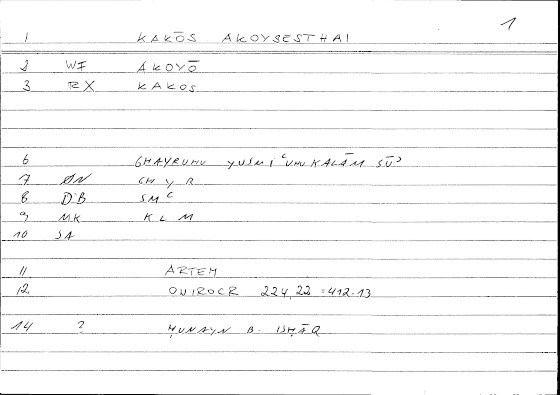 1
1 KAKŌS AKOYSESTHAI
2 WF AKOYŌ
3 RX KAKOS
6 GHAYRUHU YUSMIʿUHU KALĀM SŪʾ
7 ØN GHYR
8 DB SMʿ
9 MK KLM
10 SA
11 ARTEM
12 ONIROCR 224,22 = 412.13
14 ? ḤUNAYN B. ISḤĀQ